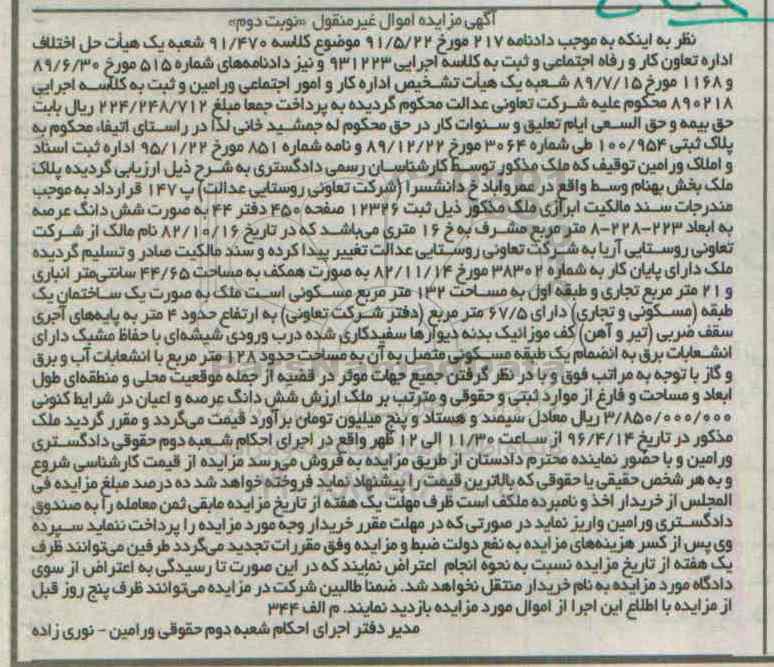 آگهی مزایده اموال غیرمنقول «نوبت دوم»
نظر به اینکه به موجب دادنامه ۲۱۷ مورخ ۹۱/۵/۲۲ موضوع کلاسه ۹۱/۴۷۰ شعبه یک هیأت حل اختلاف
اداره تعاون کار و رفاه اجتماعی و ثبت به کلاسه اجرایی ۹۳۱۲۲۳ و نیز دادنامه‌های شماره ۵۱۵ مورخ ۸۹/۶/۳۰
و ۱۱۶۸ مورخ ۸۹/۷/۱۵ شعبه یک هیأت تشخیص اداره کار و امور اجتماعی ورامین و ثبت به کلاسه اجرایی
۸۹۰۲۱۸ محکوم علیه شرکت تعاونی عدالت محکوم گردیده به پرداخت جمعا مبلغ ۲۲۴/۲۴۸/۷۱۲ ریال بابت
حق بیمه و حق السعی ایام تعلیق و سنوات کار در حق محکوم له جمشید خانی لذا در راستای اتیفاء محکوم به
پلاک ثبتی ۱۰۰/۹۵۴ طی شماره ۳۰۶۴ مورخ ۸۹/۱۲/۲۲ و نامه شماره ۸۵۱ مورخ ۹۵/۱/۲۲ اداره ثبت اسناد
و املاک ورامین توقیف که ملک مذکور توسط کارشناسان رسمی دادگستری به شرح ذیل ارزیابی گردیده پلاک
ملک بخش بهنام وسط واقع در عمروآباد خ دانشسرا (شرکت تعاونی روستایی عدالت) پ ۱۴۷ قرارداد به موجب
مندرجات سند مالکیت ابرازی ملک مذکور ذیل ثبت ۱۲۳۲۶ صفحه ۴۵۰ دفتر ۴۴ به صورت شش دانگ عرصه
به ابعاد ۲۲۳-۲۲۸-۸ متر مربع مشرف به خ ۱۶ متری می‌باشد که در تاریخ ۸۲/۱۰/۱۶ نام مالک از شرکت
تعاونی روستایی آریا به شرکت تعاونی روستایی عدالت تغییر پیدا کرده و سند مالکیت صادر و تسلیم گردیده
ملک دارای پایان کار به شماره ۳۸۳۰۲ مورخ ۸۲/۱۱/۱۴ به صورت همکف به مساحت ۴۴/۶۵ سانتی‌متر انباری
و ۲۱ متر مربع تجاری و طبقه اول به مساحت ۱۳۲ متر مربع مسکونی است ملک به صورت یک ساختمان یک
طبقه (مسکونی و تجاری) دارای ۶۷/۵ متر مربع (دفتر شرکت تعاونی) به ارتفاع حدود ۴ متر به پایه‌های آجری
سقف ضربی (تیر و آهن) کف موزائیک بدنه دیوارها سفیدکاری شده درب ورودی شیشه‌ای با حفاظ مشبک دارای
انشعابات برق به انضمام یک طبقه مسکونی متصل به آن به مساحت حدود ۱۲۸ متر مربع با انشعابات آب و برق
و گاز با توجه به مراتب فوق و با در نظر گرفتن جمیع جهات موثر در قضیه از جمله موقعیت محلی و منطقه‌ای طول
ابعاد و مساحت و فارغ از موارد ثبتی و حقوقی و مترتب بر ملک ارزش شش دانگ عرصه و اعیان در شرایط کنونی
۳/۸۵۰/۰۰۰/۰۰۰ ریال معادل سیصد و هستاد و پنج میلیون تومان برآورد قیمت می‌گردد و مقرر گردید ملک
مذکور در تاریخ ۹۶/۴/۱۴ از ساعت ۱۱/۳۰ الی ۱۲ ظهر واقع در اجرای احکام شعبه دوم حقوقی دادگستری
ورامین و با حضور نماینده محترم دادستان از طریق مزایده به فروش می‌رسد مزایده از قیمت کارشناسی شروع
و به هر شخص حقیقی یا حقوقی که بالاترین قیمت را پیشنهاد نماید فروخته خواهد شد ده درصد مبلغ مزایده فی
المجلس از خریدار اخذ و نامبرده ملکف است ظرف مهلت یک هفته از تاریخ مزایده مابقی ثمن معامله را به صندوق
دادگستری ورامین واریز نماید در صورتی که در مهلت مقرر خریدار وجه مورد مزایده را پرداخت ننماید سپرده
وی پس از کسر هزینه‌های مزایده به نفع دولت ضبط و مزایده وفق مقررات تجدید می‌گردد طرفین می‌توانند ظرف
یک هفته از تاریخ مزایده نسبت به نحوه انجام اعتراض نمایند که در این صورت تا رسیدگی به اعتراض از سوی
دادگاه مورد مزایده به نام خریدار منتقل نخواهد شد. ضمنا طالبین شرکت در مزایده می‌توانند ظرف پنج روز قبل
از مزایده با اطلاع این اجرا از اموال مورد مزایده بازدید نمایند. م الف ۳۴۴
مدیر دفتر اجرای احکام شعبه دوم حقوقی ورامین - نوری زاده